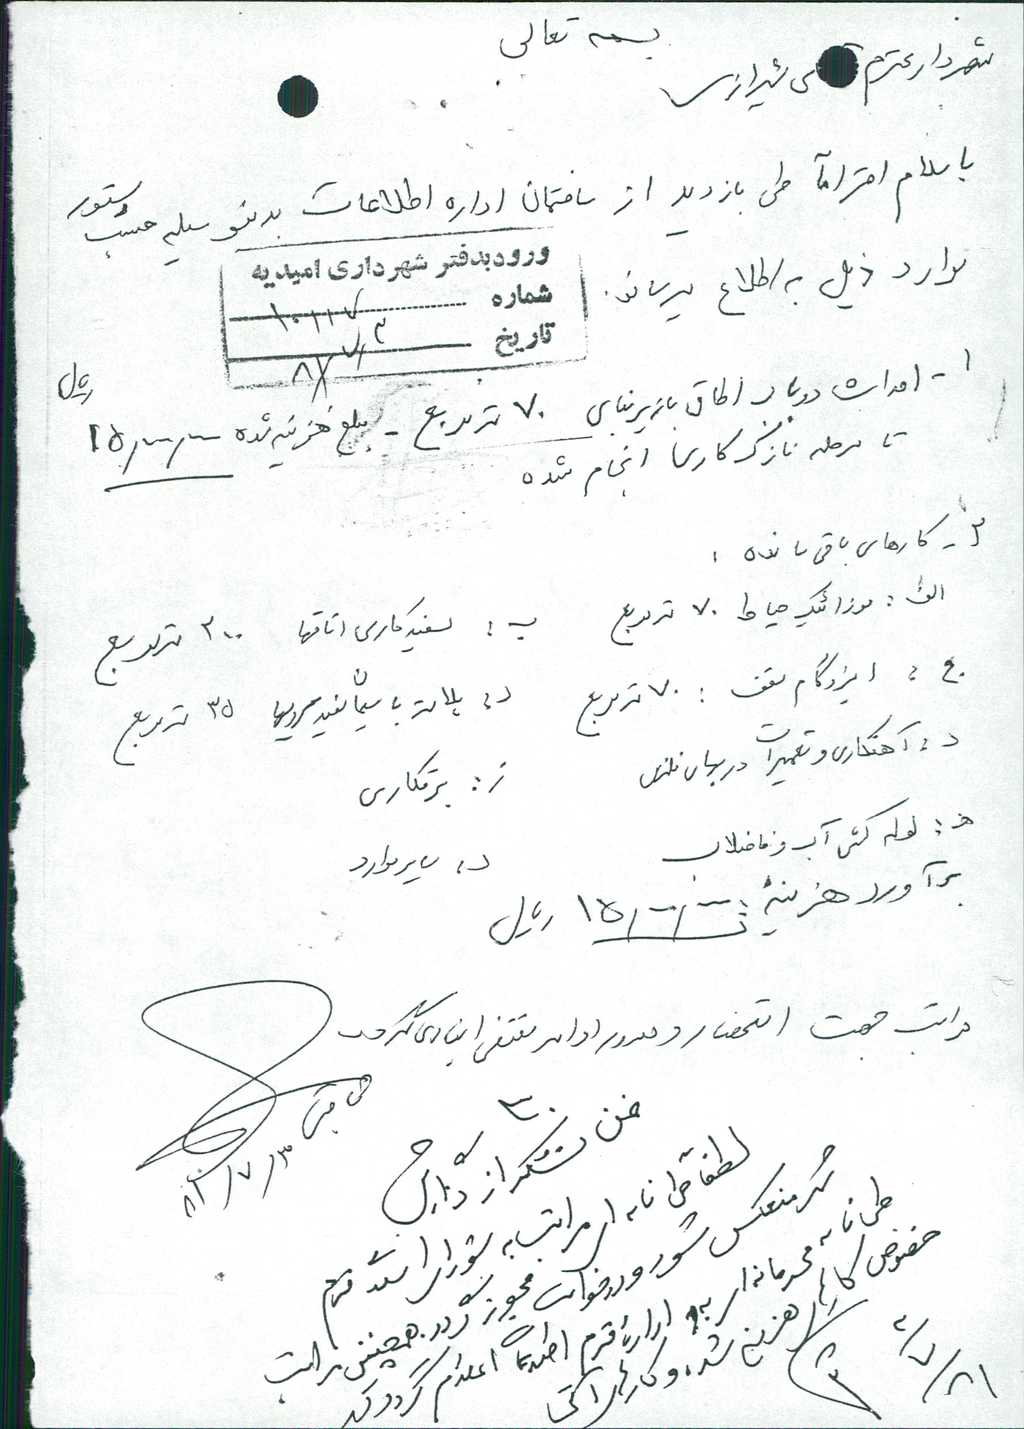 بسمه تعالی
شهردار محترم شیرازی
با سلام احتراماً طی بازدید از ساختمان اداره اطلاعات بدینوسیله حسب دستور
موارد ذیل به اطلاع میرساند.
ورود بدفتر شهرداری امیدیه
شماره ۱۰۱۱۷
تاریخ
۱- احداث دو باب اطاق با زیربنای ۷۰ مترمربع - مبلغ هزینه شده ۱۵/۰۰۰/۰۰۰ ریال
تا مرحله نازک کاری انجام شده
۲- کارهای باقی مانده :
الف : موزائیک حیاط ۷۰ مترمربع ب : سفیدکاری اتاقها ۲۰۰ مترمربع
ج : ایزوگام سقف : ۷۰ مترمربع د : پلاستر با سیمان سفید ۳۵ مترمربع
د : آهنکاری و تعمیرات دربهای فلزی ز : برقکاری
ه : لوله کشی آب و فاضلاب د : سایر موارد
برآورد هزینه : ۱۵/۰۰۰/۰۰۰ ریال
مراتب جهت استحضار و صدور اوامر مقتضی ایفاد میگردد
۸۲/۷/۳
ضمن تشکر از گزارش
لطفاً طی نامه ای مراتب به شورای اسلامی محترم
شهر منعکس شود و درخواست مجوز گردد. همچنین مراتب
طی نامه محرمانه ای به اداره محترم اطلاعات اعلام گردد که
خصوص کارهای هزینه شده و کارهای آتی